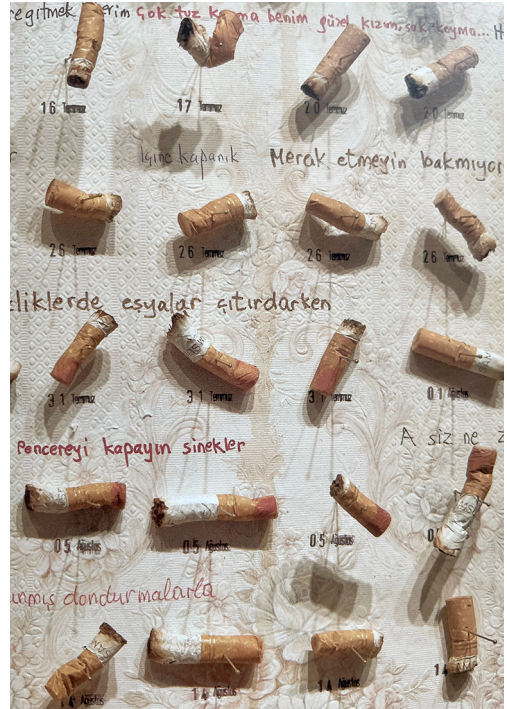 Çok tuz koyma benim güzel kızım, çok koyma...
16 Temmuz 17 Temmuz 20 Temmuz 20 Temmuz
İçine kapanık Merak etmeyin bakmıyor
26 Temmuz 26 Temmuz 26 Temmuz 26 Temmuz
liklerde eşyalar çıtırdarken
31 Temmuz 31 Temmuz 31 Temmuz 01 Ağustos
Pencereyi kapayın sinekler A siz ne
05 Ağustos 05 Ağustos 05 Ağustos
dondurmalarla
14 Ağustos 14 Ağustos 14 Ağustos 14